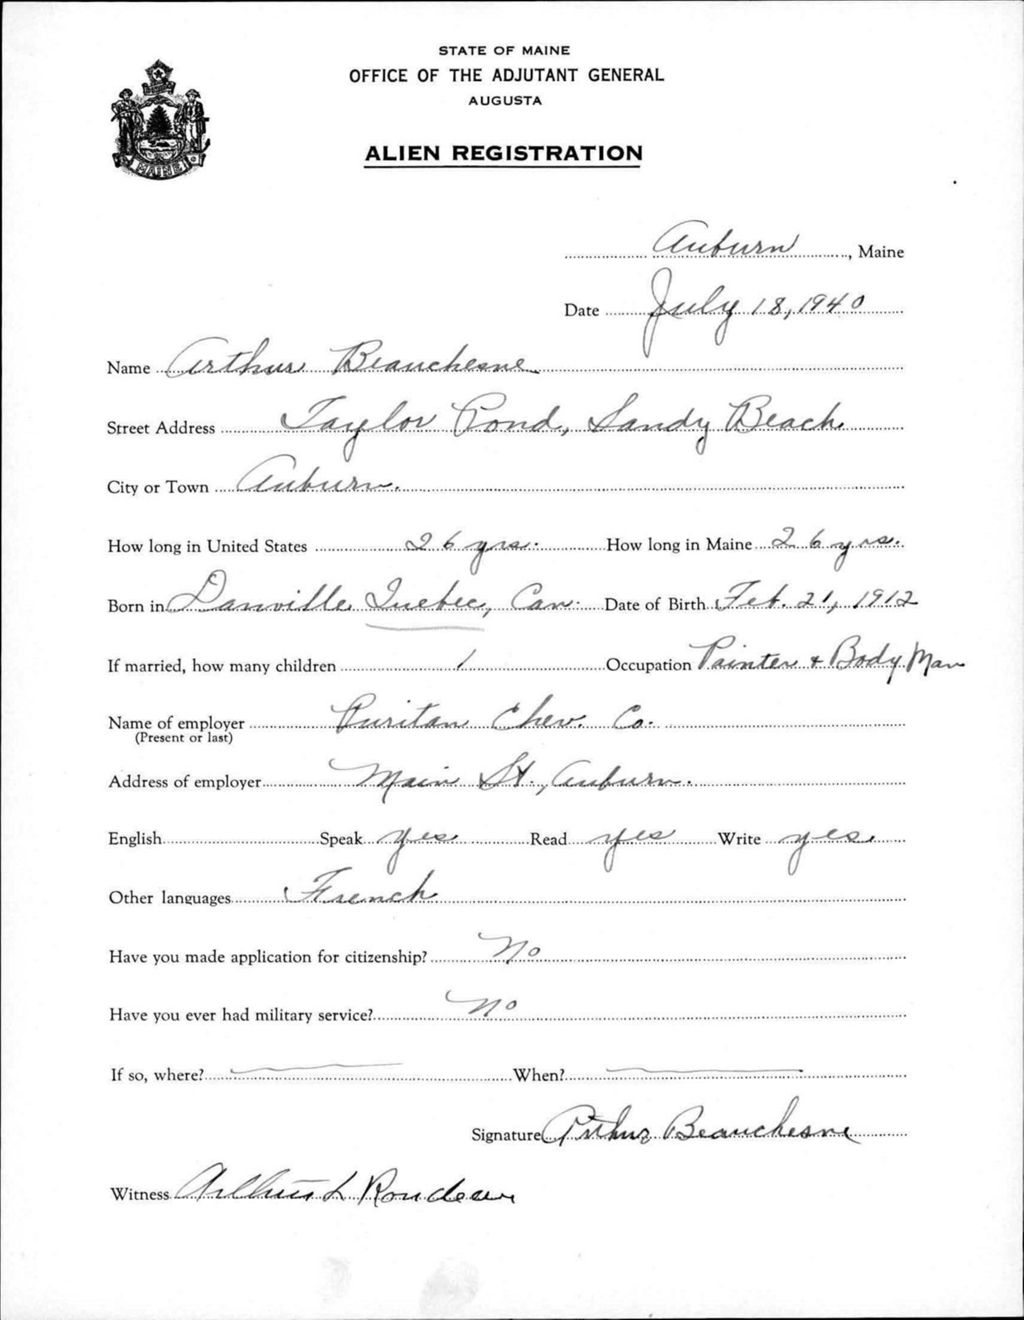 STATE OF MAINE
OFFICE OF THE ADJUTANT GENERAL
AUGUSTA
ALIEN REGISTRATION
MAINE
Auburn, Maine
Date July 18, 1940
Name Arthur Beauchesne
Street Address Taylor Pond, Sandy Beach
City or Town Auburn.
How long in United States 26 yrs. How long in Maine 26 yrs.
Born in Danville Quebec, Can. Date of Birth Feb. 21, 1912
If married, how many children 1 Occupation Painter + Body Man
Name of employer Puritan Chev. Co.
(Present or last)
Address of employer Main St., Auburn.
English Speak yes Read yes Write yes.
Other languages French
Have you made application for citizenship? No
Have you ever had military service? No
If so, where? When?
Signature Arthur Beauchesne
Witness L Rondeau